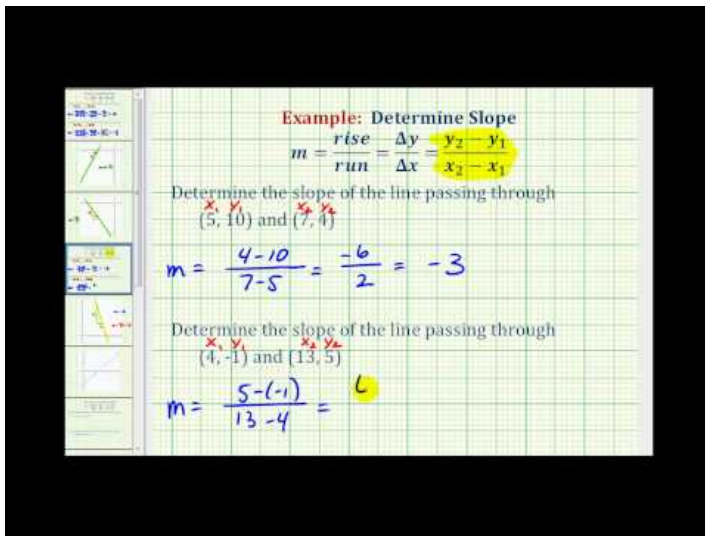 Example: Determine Slope
m = rise/run = Δy/Δx = y₂ − y₁/x₂ − x₁
Determine the slope of the line passing through
x₁ y₁ x₂ y₂
(5, 10) and (7, 4)
m = 4-10/7-5 = -6/2 = -3
Determine the slope of the line passing through
x₁ y₁ x₂ y₂
(4, -1) and (13, 5)
m = 5-(-1)/13-4 =